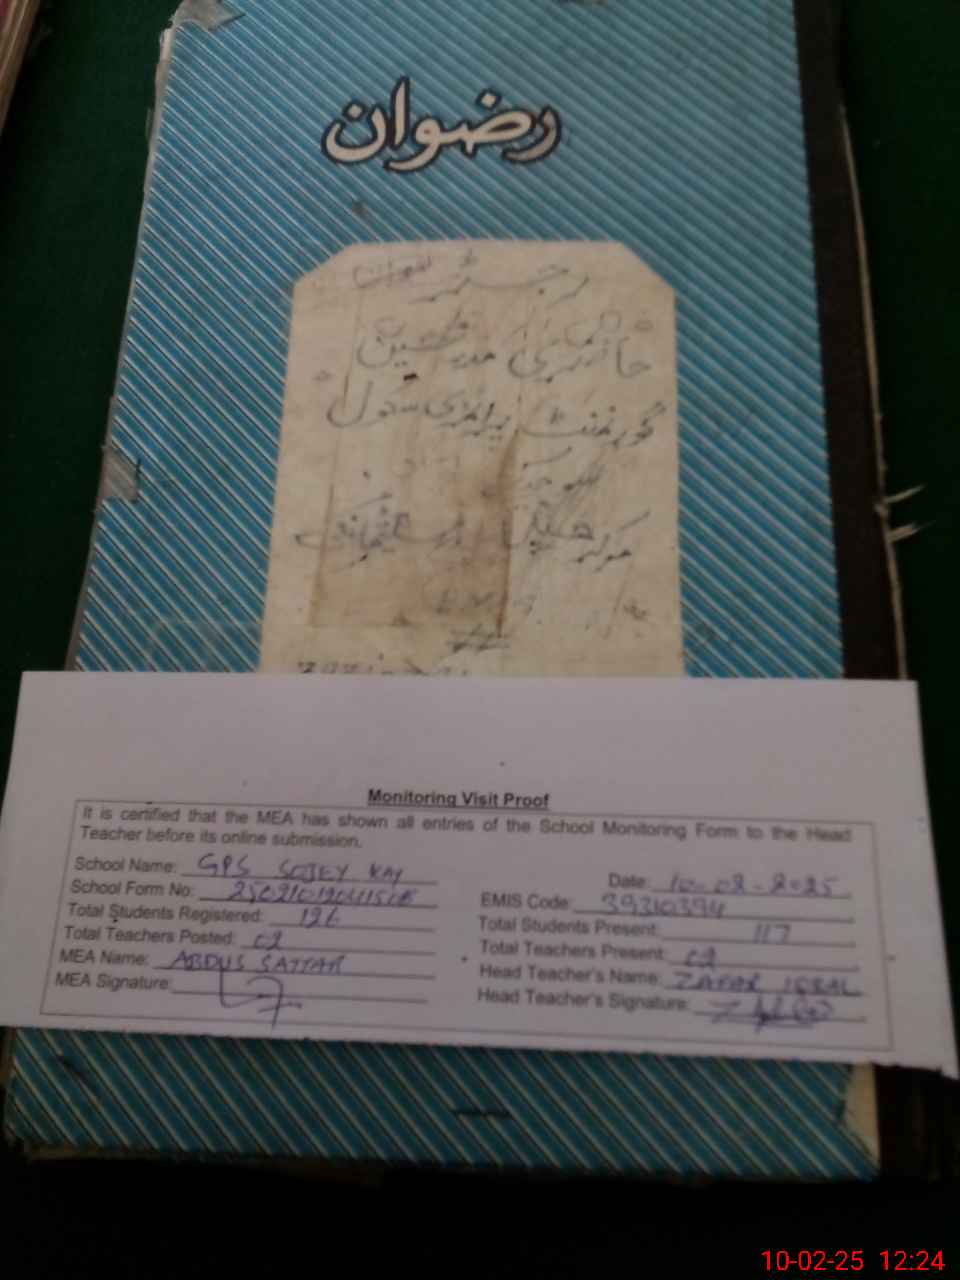 رضوان
رجسٹر
حاضری مدرسین
گورنمنٹ پرائمری سکول
مرکز
Monitoring Visit Proof
It is certified that the MEA has shown all entries of the School Monitoring Form to the Head
Teacher before its online submission.
School Name: GPS SOJEY KAY
Date: 10-02-2025
School Form No:
EMIS Code: 39310394
Total Students Registered: 126
Total Students Present: 117
Total Teachers Posted: 02
Total Teachers Present: 02
MEA Name: ABDUS SATTAR
Head Teacher's Name: ZAFAR IQBAL
MEA Signature:
Head Teacher's Signature:
10-02-25 12:24